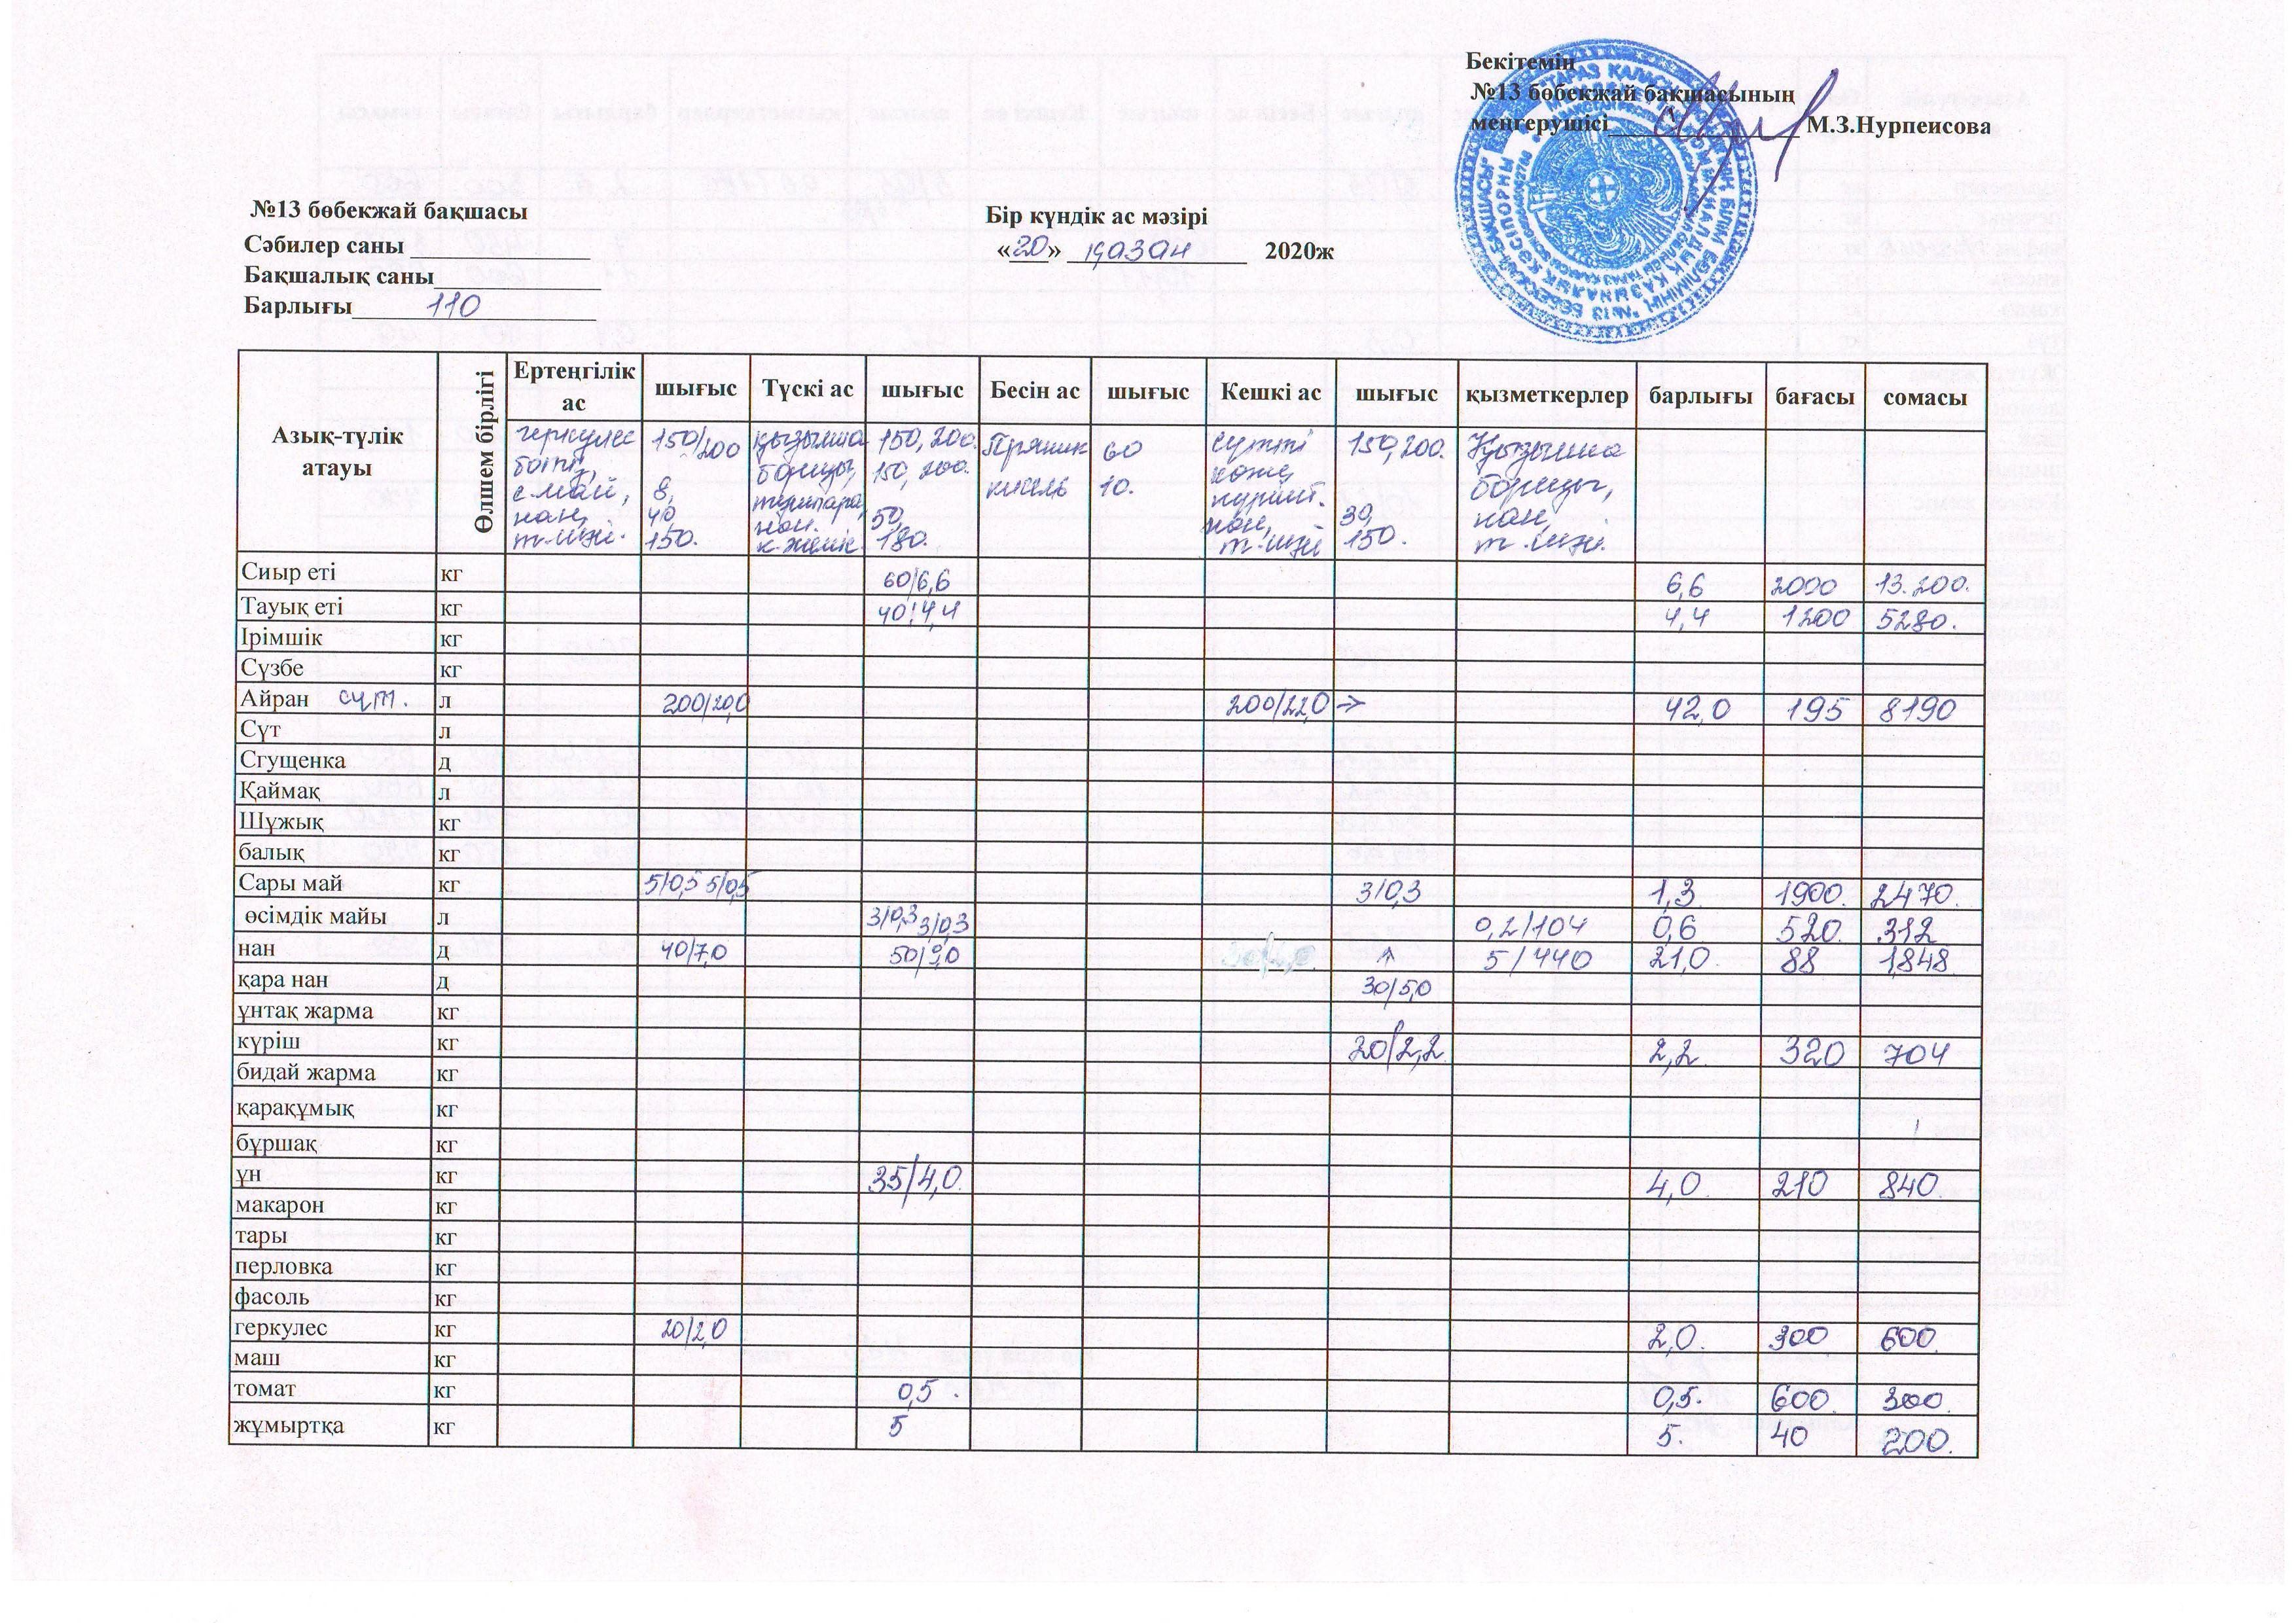 Бекітемін
№13 бөбекжай бақшасының
меңгерушісі М.З.Нурпеисова
№13 бөбекжай бақшасы
Бір күндік ас мәзірі
Сәбилер саны
«20» қазан 2020ж
Бақшалық саны
Барлығы 110
Азық-түлік атауы Өлшем бірлігі Ертеңгілік ас шығыс Түскі ас шығыс Бесін ас шығыс Кешкі ас шығыс қызметкерлер барлығы бағасы сомасы
геркулес 150/200 қызылша 150, 200. Пряник 60 сүтті 150, 200. Қызылша
ботқ, борщы, 150, 200. кисель 10. көже борщы,
с.май, 8, күріш. нан,
нан, 40 нан. 50, нан, 30, т-шәй.
т-шәй. 150. 180. т-шәй 150.
Сиыр еті кг 60/6,6 6,6 2000 13.200.
Тауық еті кг 40/4,4 4,4 1200 5280.
Ірімшік кг
Сүзбе кг
Айран сүт. л 200/20,0 200/22,0 → 42,0 195 8190
Сүт л
Сгущенка д
Қаймақ л
Шұжық кг
балық кг
Сары май кг 5/0,5 5/0,5 3/0,3 1,3 1900. 2470.
өсімдік майы л 3/0,3 3/0,3 0,2/104 0,6 520. 312
нан д 40/7,0 50/9,0 ↑ 5/440 21,0. 88 1848
қара нан д 30/5,0
ұнтақ жарма кг
күріш кг 20/2,2 2,2. 320 704
бидай жарма кг
қарақұмық кг
бұршақ кг
ұн кг 35/4,0. 4,0. 210 840.
макарон кг
тары кг
перловка кг
фасоль кг
геркулес кг 20/2,0 2,0. 300 600.
маш кг
томат кг 0,5. 0,5. 600. 300.
жұмыртқа кг 5 5. 40 200.